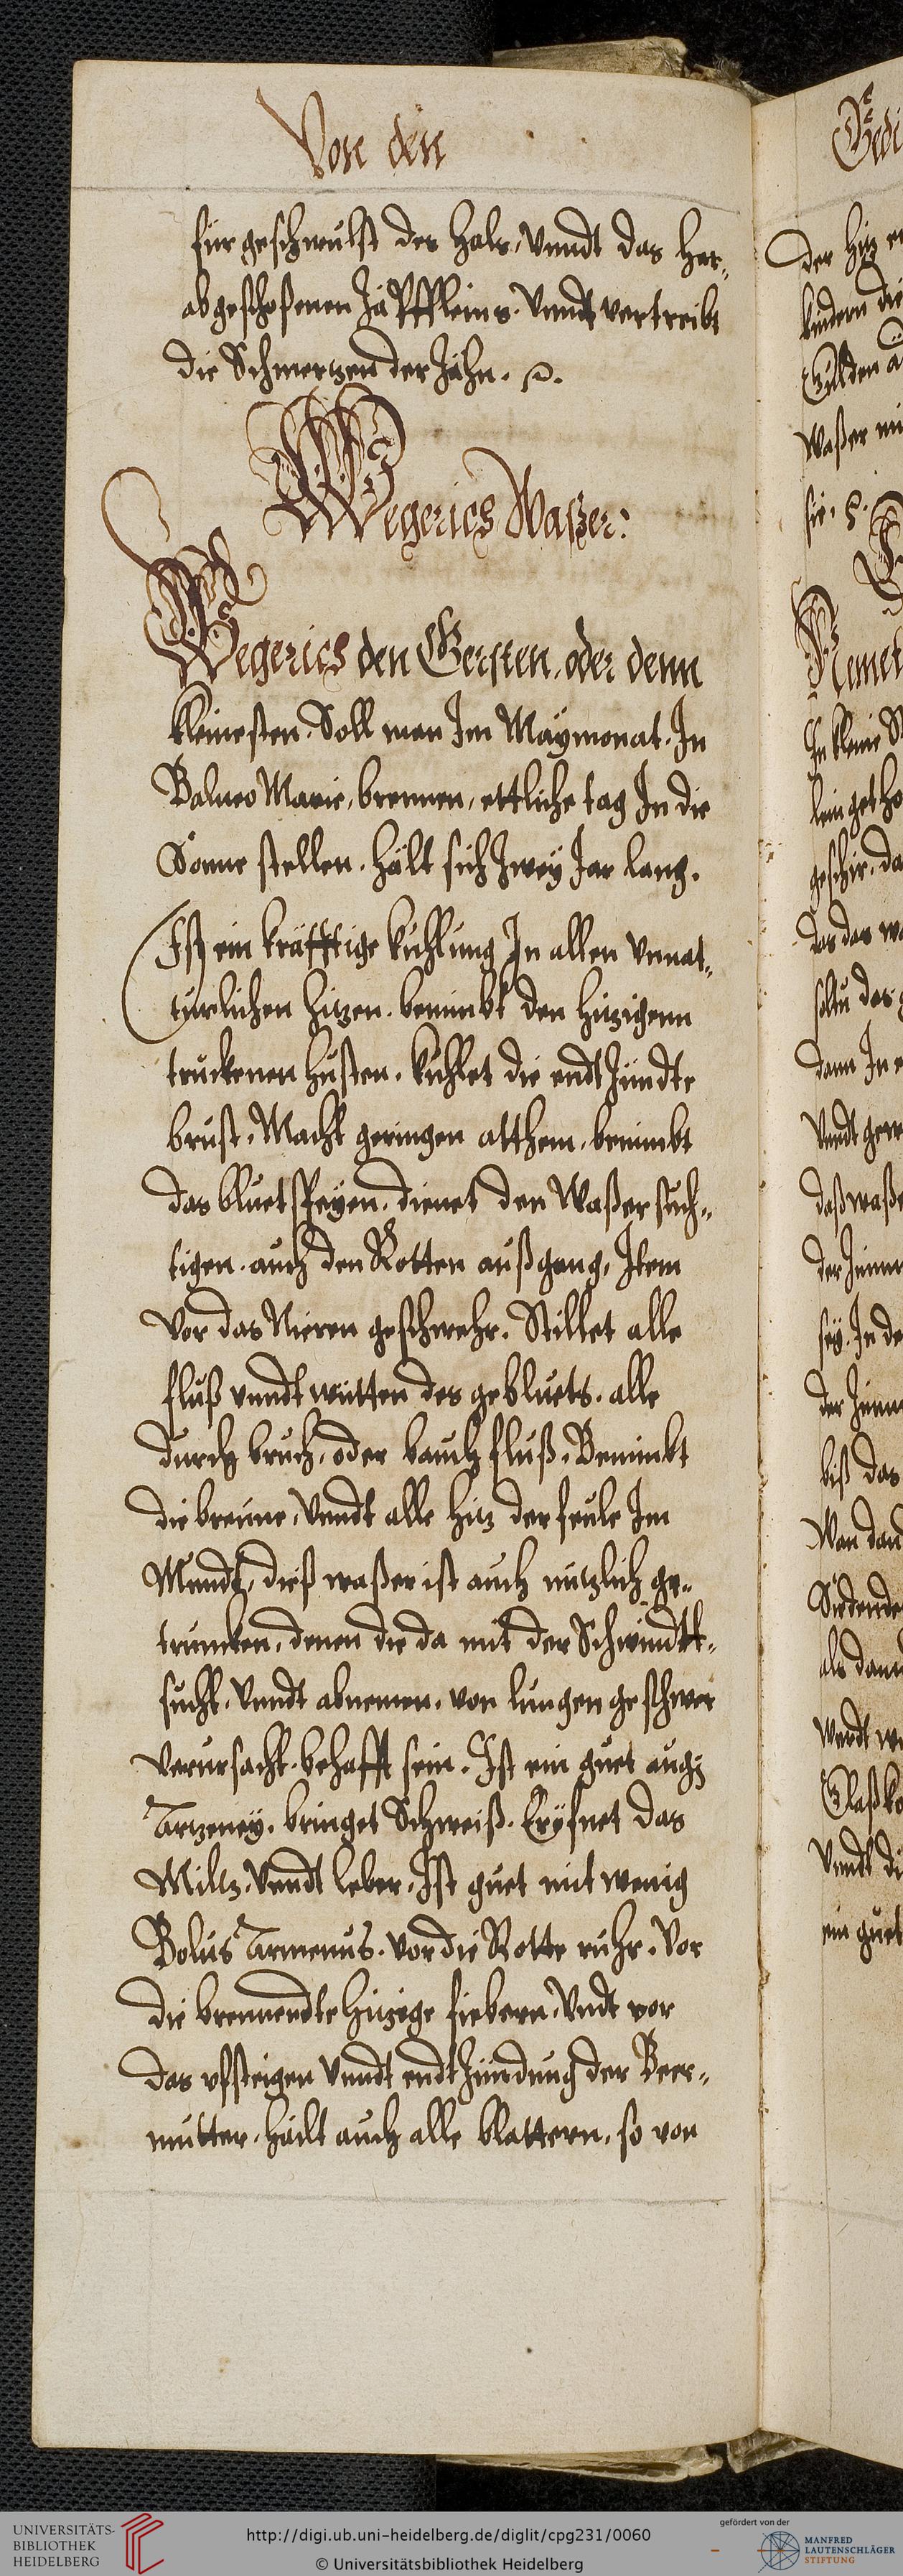 Von den
für geschwulst des Hals, Vnndt das Her-
abgeschoßenen Zäpffleins. Vnndt vertreibt
die Schmerzen der Zähn. ꝛc.
Wegerichs Waßer:
Wegerichs den Gersten, oder denn
kleinesten. Soll man Im Maymonat. In
Balneo Marie, brennen, ettliche tag In die
Sonne stellen. hält sich Zwey Jar lang.
Ist ein kräfftige kuhlung In allen Vnnat-
türlichen hizen. benimbt den hizigenn
truckenen husten. kuhlet die endtZündte
brust. Macht geringen atthem, benimbt
das bluetspeyen. dienet den Waßersüch-
tigen. auch den Rotten außgang, Item
Vor das Nieren geschwehr. Stillet alle
fluß vnndt wütten des gebluets. alle
durch bruch, oder bauch fluß. Benimbt
die breüne, Vnndt alle hiz der feule Im
Mundt, dieß waßer ist auch nüzlich ge-
truncken, denen die da mit der Schwindtt-
sucht, Vnndt abnemen, von lungen geschwer
verursacht, behafft sein. Ist ein guet aug
Arzeney. bringet Schweiß. Eröfnet das
Milz, Vnndt leber. Ist guet mit wenig
Bolus Armenus. vor die Rotte ruhr. Vor
die brennendte hizige fiebern, Vndt vor
das vfsteigen Vnndt endtZündung der Beer-
mutter. hailt auch alle blattern, so von
Gedi
der hiz
kindern die
Gulden
Waßer mi
sie. ꝛc.
Nemet
In kleine
lein
geschir. da
das das wa
soltu das
dann In
Vndt
daß waße
der
sey. In de
der
biß das
Wan dan
Siedende
als dann
werdt
Glaßko
Vnndt di
ein guet
UNIVERSITÄTS-
BIBLIOTHEK
HEIDELBERG
http://digi.ub.uni-heidelberg.de/diglit/cpg231/0060
© Universitätsbibliothek Heidelberg
gefördert von der
MANFRED
LAUTENSCHLÄGER
STIFTUNG